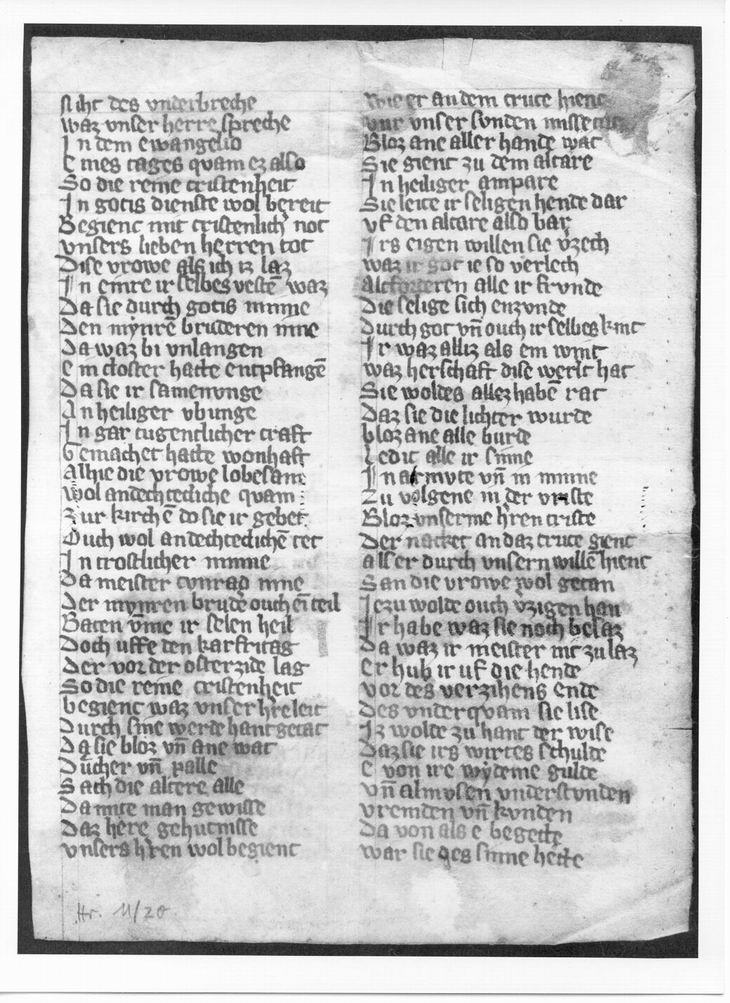 sicht des vnderbreche
waz vnser herre spreche
In dem ewangelio
Emes tages quam ez also
So die reine cristenheit
In gotis dienste wol bereit
Begienc mit cristenlich not
vnsers lieben herren tot
Dise vrowe als ich iz laz
In eime ir selbes vestē waz
Da sie durch gotis minne
Den mynrē bruderen inne
Da waz bi vnlangen
ein closter hatte entpfangē
Da sie ir samenvnge
An heiliger vbunge
In gar tugentlicher craft
Gemachet hatte wonhaft
Alhie die vrowe lobesam
wol andechtecliche quam
Zur kirchē do sie ir gebet
Ouch wol andechteclichē tet
In trostlicher minne
Da meister cvnrad inne
Der mynren brudē ouch eī teil
Baten vme ir selen heil
Doch uffe den karfritag
der vor der osterzide lag
So die reine cristenheit
begienc waz vnser hr̄e leit
Durch sine werde hantgetat
Da sie bloz vn̄ ane wat
Dūcher vn̄ palle
Sach die altere alle
Da mite man gewisse
Daz here gehucnisse
vnsers hr̄en wol begienc
Hr. 11/20
wie er an dem cruce hienc
vur vnser svnden missetat
Bloz ane aller hande wat
Sie gienc zu dem altare
In heiliger ampare
Sie leite ir seligen hende dar
vf den altare also bar
Irs eigen willen sie v̄zech
waz ir got ie so verlech
Alcforderen alle ir frvnde
Die selige sich enzvnde
Durch got vn̄ ouch ir selbes kint
Ir waz alliz als ein wint
waz herschaft dise werlt hat
Sie woldes allez habē rat
Daz sie die lichter wurde
bloz ane alle burde
Ledic alle ir sinne
In armvte vn̄ in minne
Zu volgene in der vriste
Bloz vnserme hr̄en criste
Der nacket an daz cruce gienc
als er durch vnsern willē hienc
San die vrowe wol getan
Iezu wolde ouch v̄zigen han
Ir habe waz sie noch besaz
Da waz ir meister mit zu laz
Er hub ir uf die hende
vor des verzihens ende
Des vnderquam sie lise
Iz wolde zu hant der wise
Daz sie irs wirtes schulde
E von ire wydeme gulde
vn̄ almvsen vnderstvnden
vremden vn̄ kvnden
Da von als e begerte
war sie des sinne herte